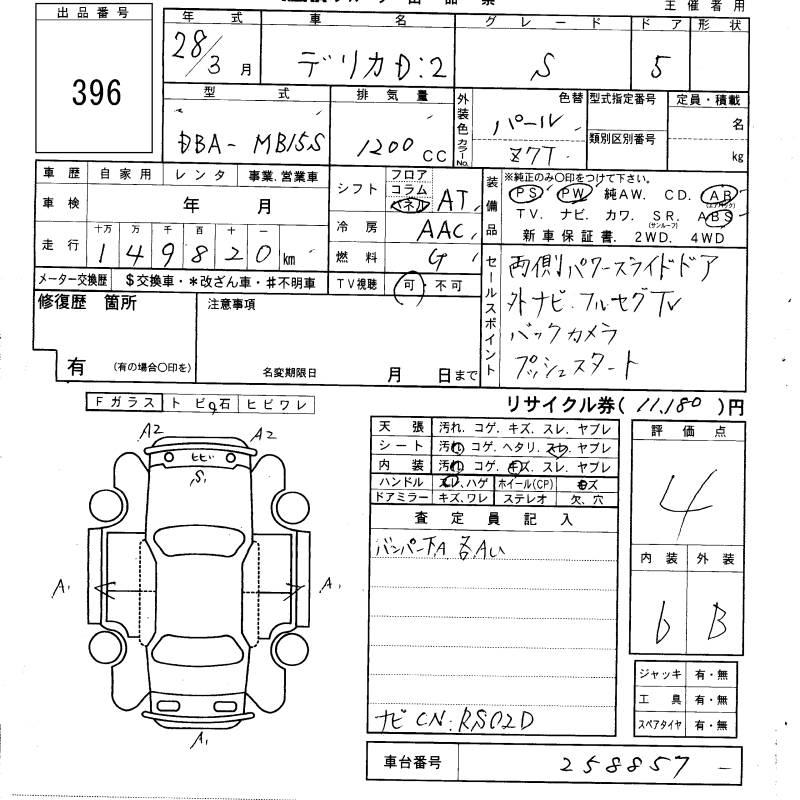 出品番号
396
年式 車名 グレード ドア 形状
主催者用
28/3月 デリカD:2 S 5
型式 排気量 外装色 色替 型式指定番号 定員・積載
DBA- MB15S 1200cc パール カラーNo. Z7T 類別区別番号 名
kg
車歴 自家用 レンタ 事業.営業車
車検 年 月
走行 十万 万 千 百 十
149820km
メーター交換歴 $交換車・*改ざん車・#不明車
シフト フロア コラム パネル AT
冷房 AAC
燃料 G
TV視聴 可・不可
装備品 ※純正のみ○印をつけて下さい。
PS PW 純AW. CD. AB (エアバック)
TV. ナビ. カワ. SR. (サンルーフ) ABS
新車保証書. 2WD. 4WD
セールスポイント
両側パワースライドドア
外ナビ・フルセグTV
バックカメラ
プッシュスタート
修復歴 箇所
有 (有の場合○印を)
注意事項
名変期限日 月 日まで
リサイクル券( 11,180 )円
Fガラス トビ石 ヒビワレ
A2 A2
ヒビ
S1
A1 A1
A1
天張 汚れ. コゲ. キズ. スレ. ヤブレ
シート 汚れ. コゲ. ヘタリ. スレ. ヤブレ
内装 汚れ. コゲ. キズ. スレ. ヤブレ
ハンドル スレ、ハゲ ホイール(CP) キズ
ドアミラー キズ、ワレ ステレオ 欠、穴
査定員記入
バンパー下A 各A
ナビ CN-RS02D
評価点
4
内装 外装
6 B
ジャッキ 有・無
工具 有・無
スペアタイヤ 有・無
車台番号 258857 -